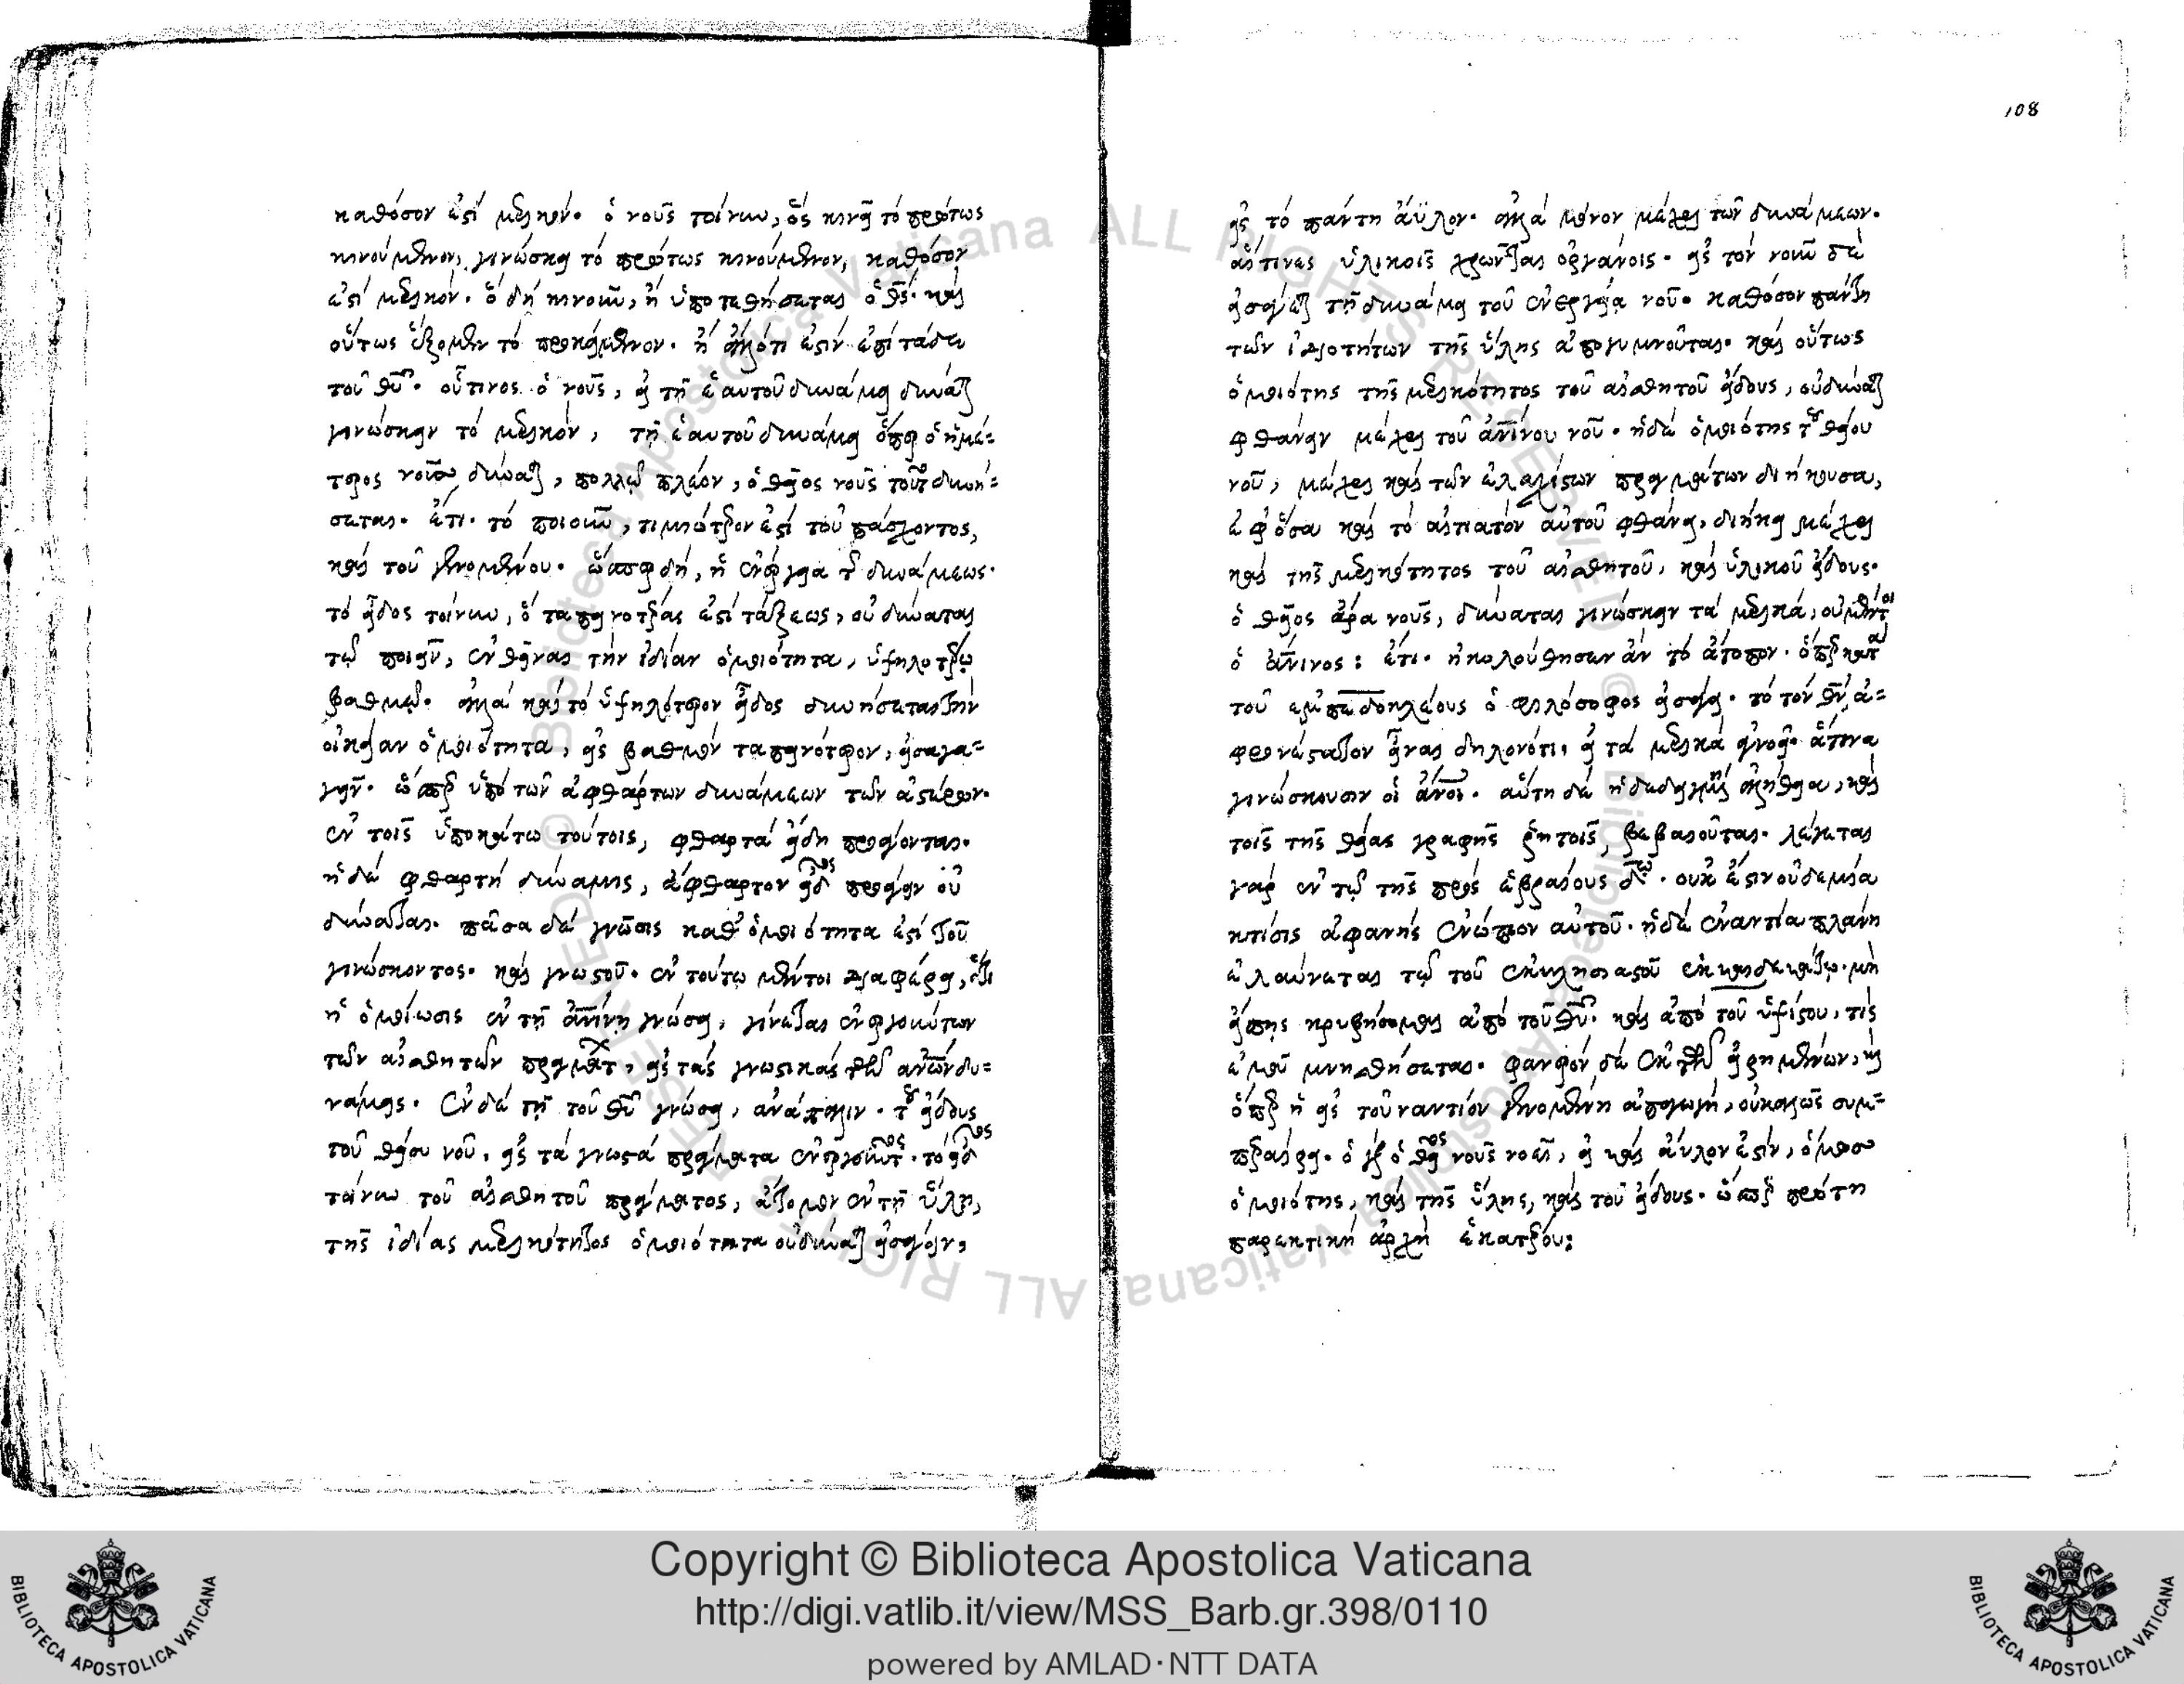 καθόσον ἐστὶ μερικόν. ὁ νοῦς τοίνυν, ὃς κινεῖ τὸ πρώτως
κινούμενον, γινώσκει τὸ πρώτως κινούμενον, καθόσον
ἐστὶ μερικόν. ὃ δὴ κινοῦν, ἢ ὑποτεθήσεται ὁ θς. καὶ
οὕτως ἕξομεν τὸ προκείμενον. ἢ ἄλλό τι ἐστὶν ἐπίταδε
τοῦ θυ. οὗτινος ὁ νοῦς, εἰ τῇ ἑαυτοῦ δυνάμει δύναται
γινώσκειν τὸ μερικόν, τῇ ἑαυτοῦ δυνάμει ὅπερ ὁ ἡμέ-
τερος νοῦς οὐ δύναται, πολλῷ πλέον, ὁ θεῖος νοῦς τοῦτο δυνή-
σεται. ἔτι. τὸ ποιοῦν, τιμιώτερον ἐστὶ τοῦ πάσχοντος,
καὶ τοῦ γενομένου. ὥσπερ δὴ, ἡ ἐνέργεια τῆς δυνάμεως.
τὸ εἶδος τοίνυν, ὃ ταπεινοτέρας ἐστὶ τάξεως, οὐ δύναται
τῷ ποιεῖν, ἐνθεῖναι τὴν ἰδίαν ὁμοιότητα, ὑψηλοτέρῳ
βαθμῷ. ἀλλὰ καὶ τὸ ὑψηλότερον εἶδος δυνήσεται τὴν
οἰκείαν ὁμοιότητα, εἰς βαθμὸν ταπεινότερον, εἰσαγα-
γεῖν. ὥσπερ ὑπὸ τῶν ἀφθάρτων δυνάμεων τῶν ἀστέρων.
ἐν τοῖς ὑποκάτω τούτοις, φθαρτὰ εἴδη προΐονται.
ἡ δὲ φθαρτὴ δύναμις, ἄφθαρτον εἶδος προάγειν οὐ
δύναται. πᾶσα δὲ γνῶσις καθ' ὁμοιότητα ἐστὶ τοῦ
γινώσκοντος. καὶ γνωστοῦ. ἐν τούτῳ μέντοι διαφέρει, ὅτι
ἡ ὁμοίωσις ἐν τῇ ἀνίνῃ γνώσει, γίνεται ἐνεργούντων
τῶν αἰσθητῶν πραγμάτ, εἰς τὰς γνωστικὰς τῶν ανων δυ-
νάμεις. ἐν δὲ τῇ τοῦ θυ γνώσει, ἀνάπαλιν. τοῦ εἴδους
τοῦ θείου νοῦ, εἰς τὰ γνωστὰ πράγματα ἐνεργοῦντος. τὸ εἶδος
τοίνυν τοῦ αἰσθητοῦ πράγματος, ἄτομον ἐν τῇ ὕλῃ,
τῆς ἰδίας μερικότητος ὁμοιότητα οὐ δύναται εἰσφέρειν,
108
εἰς τὸ πάντη ἄϋλον. ἀλλὰ μόνον μέχρι τῶν δυνάμεων.
αἵτινες ὑλικοῖς χρῶνται ὀργάνοις. εἰς τὸν νοῦν δὲ
εἰσφέρεται τῇ δυνάμει τοῦ ἐνεργείᾳ νοῦ. καθόσον πάντη
τῶν ἰδιοτήτων τῆς ὕλης ἀπογυμνοῦται. καὶ οὕτως
ὁμοιότης τῆς μερικότητος τοῦ αἰσθητοῦ εἴδους, οὐ δύναται
φθάνειν μέχρι τοῦ ἀνίνου νοῦ. ἡ δὲ ὁμοιότης τοῦ θείου
νοῦ, μέχρι καὶ τῶν ἐλαχίστων πραγμάτων διήκουσα,
ἐφ' ὅσα καὶ τὸ αἰτιατὸν αὐτοῦ φθάνει, διήκει μέχρι
καὶ τῆς μερικότητος τοῦ αἰσθητοῦ, καὶ ὑλικοῦ εἴδους.
ὁ θεῖος ἄρα νοῦς, δύναται γινώσκειν τὰ μερικά, οὐ μέντοι
ὁ ἄνινος: ἔτι. ἠκολούθησεν ἂν τὸ ἄτοπον. ὅπερ κατὰ
τοῦ ἐμπεδοκλέους ὁ φιλόσοφος εἰσάγει. τὸ τὸν θν ἀ-
φρονέστατον εἶναι δηλονότι, εἰ τὰ μερικὰ ἀγνοεῖ. ἅτινα
γινώσκουσιν οἱ ἄνοι. αὕτη δὲ ἡ δεδειγμένη ἀλήθεια, καὶ
τοῖς τῆς θείας γραφῆς ῥητοῖς, βεβαιοῦται. λέγεται
γὰρ ἐν τῷ τῆς πρὸς ἑβραίους δω. οὐκ ἔστιν οὐδεμία
κτίσις ἀφανὴς ἐνώπιον αὐτοῦ. ἡ δὲ ἐναντία πλάνη
ἐλαύνεται τῷ τοῦ ἐκκλησιαστοῦ ἑκκαιδεκάτῳ. μὴ
εἴπῃς κρυβήσομαι ἀπὸ τοῦ θυ. καὶ ἀπὸ τοῦ ὑψίστου, τίς
ἐμοῦ μνησθήσεται. φανερὸν δὲ ἐκ τῶν εἰρημένων, καὶ
ὅπερ ἡ εἰς τοὐναντίον γενομένη ἀπαγωγή, οὐ καλῶς συμ-
περαίρει. ὃ γὰρ ὁ θεῖος νοῦς νοεῖ, εἰ καὶ ἄυλον ἐστὶν, ὅμως
ὁμοιότης, καὶ τῆς ὕλης, καὶ τοῦ εἴδους. ὥσπερ πρώτη
παρεκτικὴ ἀρχὴ ἑκατέρου:
Copyright © Biblioteca Apostolica Vaticana
http://digi.vatlib.it/view/MSS_Barb.gr.398/0110
powered by AMLAD·NTT DATA